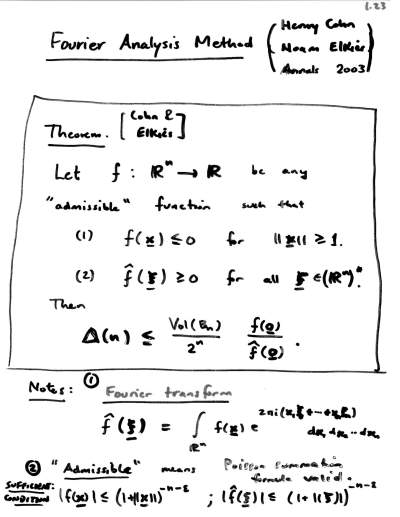 1.23
Fourier Analysis Method (Henry Cohn
Noam Elkies
Annals 2003)
Theorem. [Cohn &
Elkies]
Let f : ℝⁿ → ℝ be any
"admissible" function such that
(1) f(x) ≤ 0 for ||x|| ≥ 1.
(2) f̂(ξ) ≥ 0 for all ξ ∈ (ℝⁿ)*.
Then
Δ(n) ≤ Vol(Bₙ)/2ⁿ f(0)/f̂(0).
Notes: ① Fourier transform
f̂(ξ) = ∫_ℝⁿ f(x) e^{2πi(x₁ξ₁+···+xₙξₙ)} dx₁ dx₂ ·· dxₙ
② "Admissible" means Poisson summation
formula valid.
SUFFICIENT
CONDITION |f(x)| ≤ (1+||x||)^{-n-ε} ; |f̂(ξ)| ≤ (1+|(ξ)|)^{-n-ε}